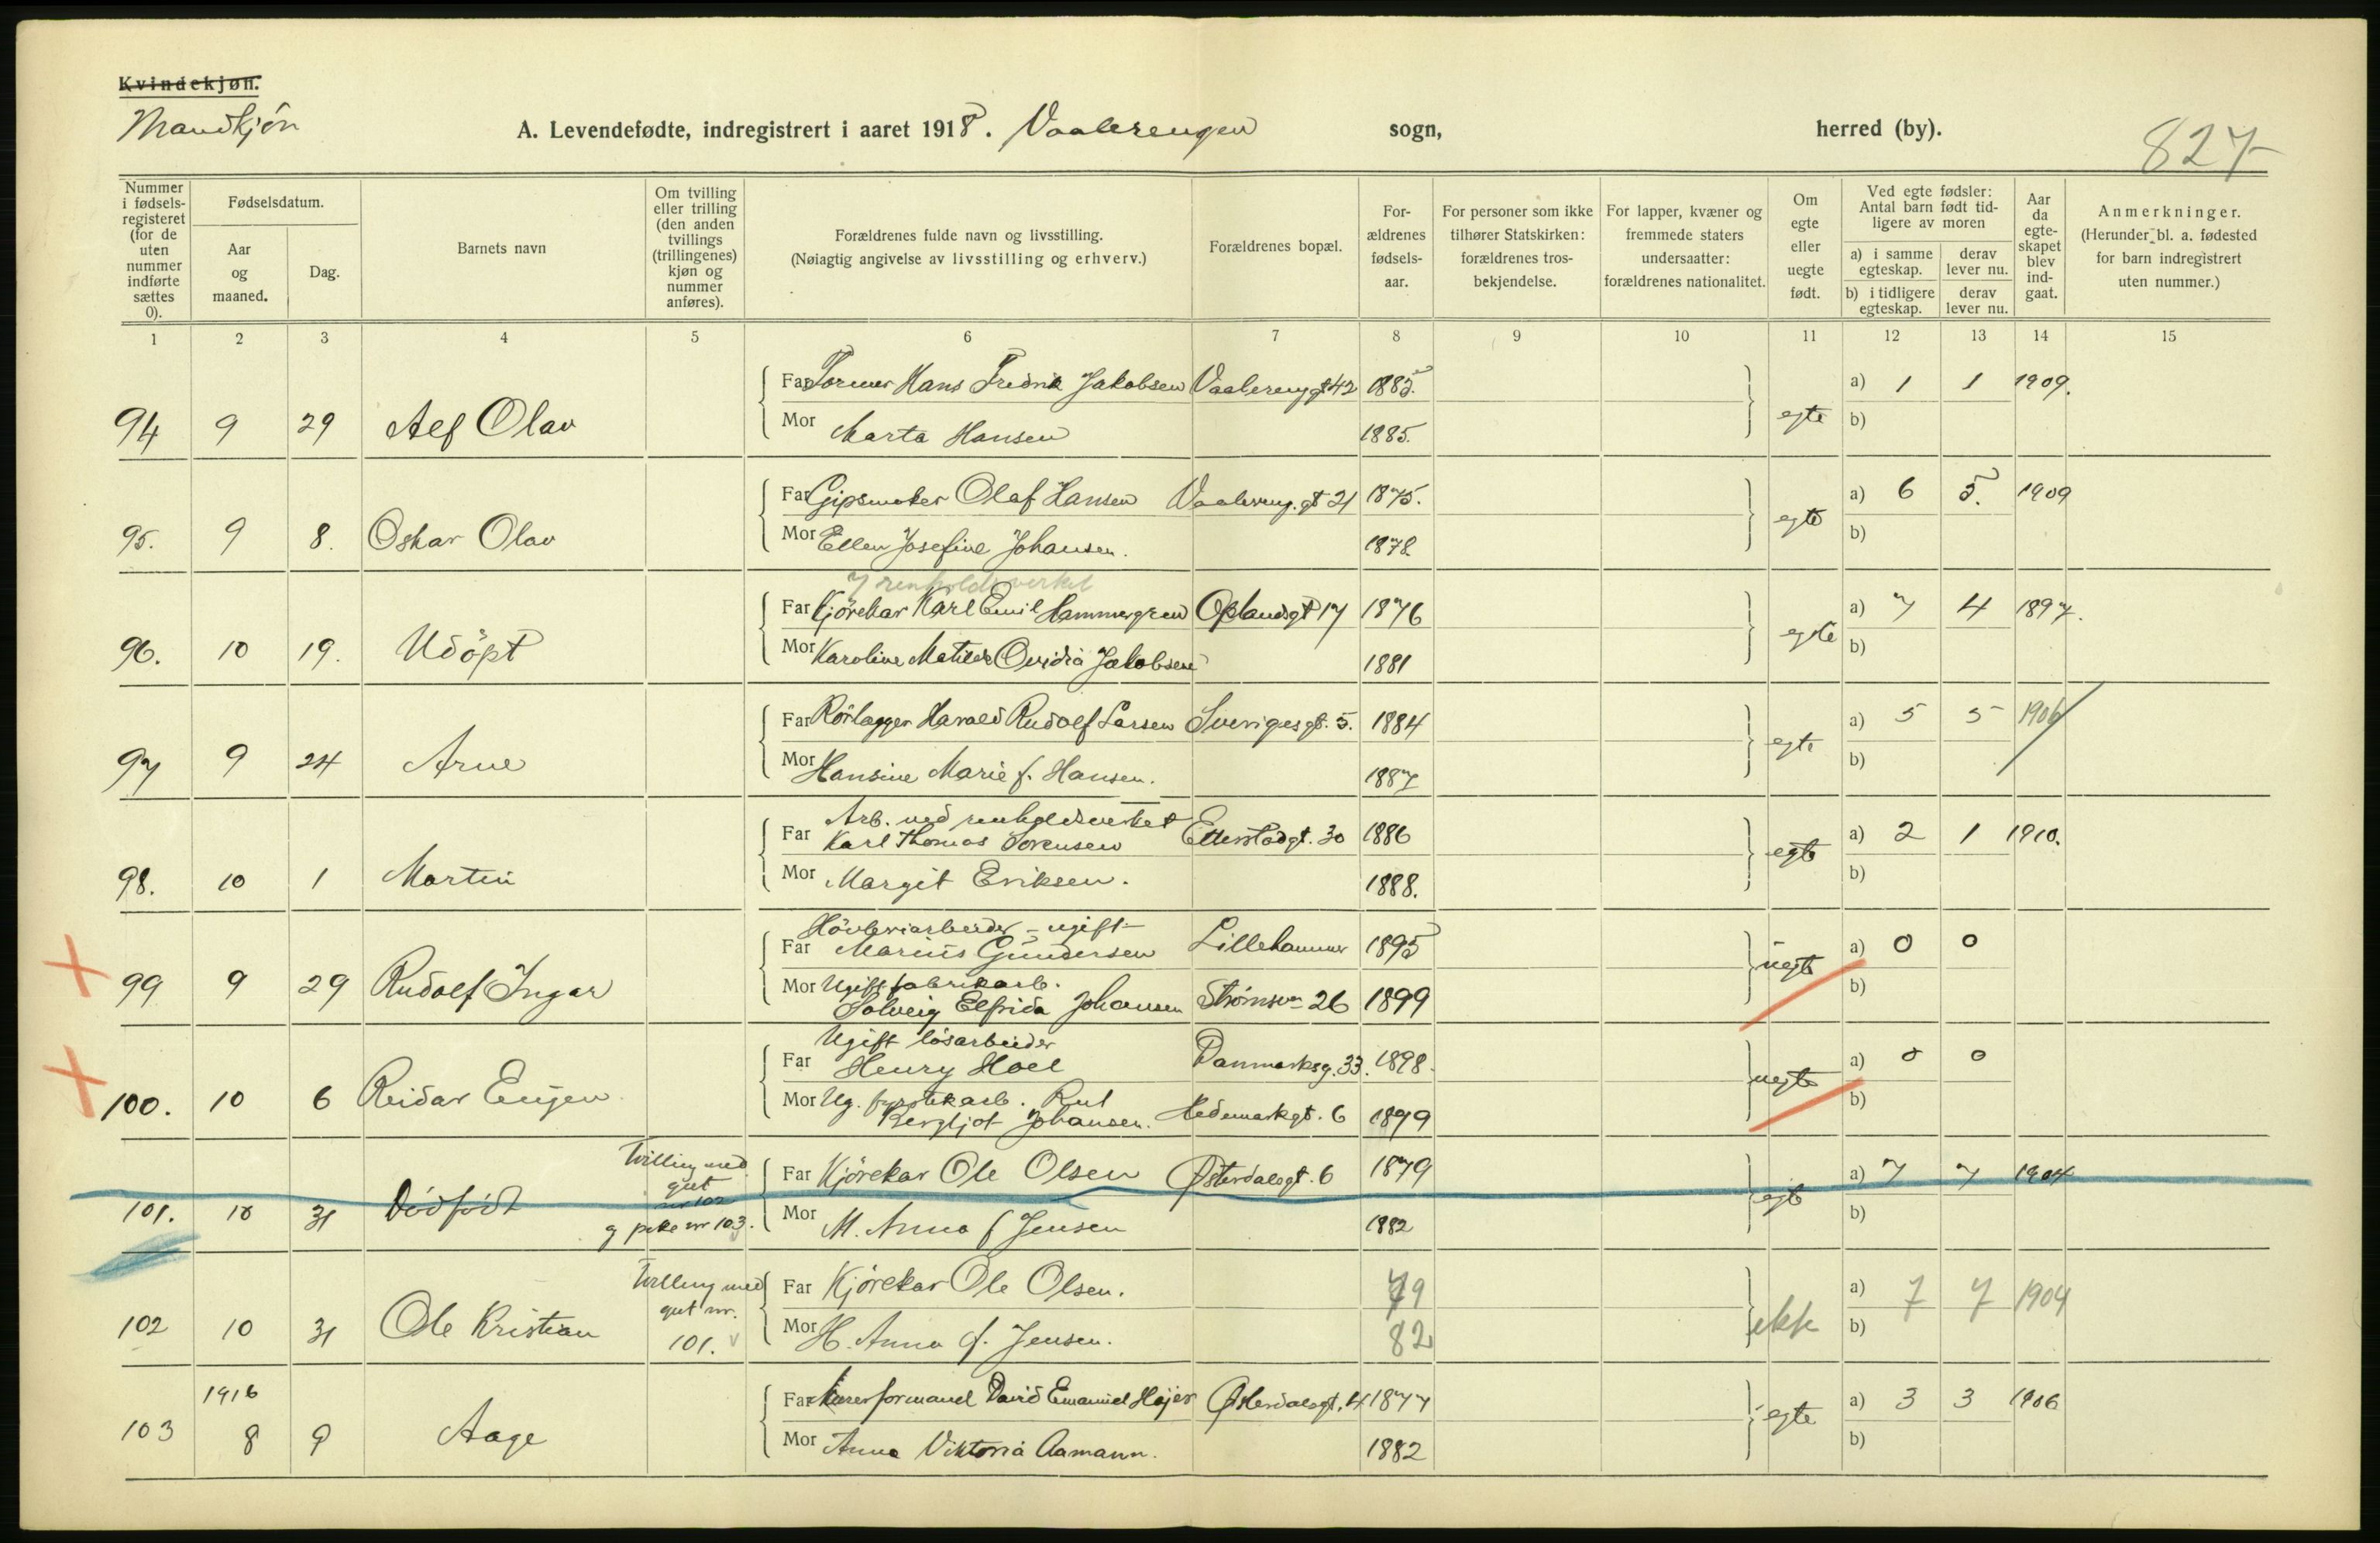 Kvindekjøn.
Mandkjön
A. Levendefødte, indregistrert i aaret 1918. Vaalerengen sogn, herred (by).
827
Nummer i fødsels-registeret (for de uten nummer indførte sættes 0).
Fødselsdatum.
Aar og maaned.
Dag.
Barnets navn
Om tvilling eller trilling (den anden tvillings (trillingenes) kjøn og nummer anføres).
Forældrenes fulde navn og livsstilling.
(Nøiagtig angivelse av livsstilling og erhverv.)
Forældrenes bopæl.
For-ældrenes fødsels-aar.
For personer som ikke tilhører Statskirken: forældrenes tros-bekjendelse.
For lapper, kvæner og fremmede staters undersaatter: forældrenes nationalitet.
Om egte eller uegte født.
Ved egte fødsler: Antal barn født tid-ligere av moren
a) i samme egteskap.
derav lever nu.
b) i tidligere egteskap.
derav lever nu.
Aar da egte-skapet blev ind-gaat.
Anmerkninger.
(Herunder bl. a. fødested for barn indregistrert uten nummer.)
1 2 3 4 5 6 7 8 9 10 11 12 13 14 15
Far Former Hans Fredrik Jakobsen Vaalerenggt 42 1885. a) 1 1 1909.
94 9 29 Alf Olav Mor Marta Hansen 1885. egte b)
Far Gipsmaker Olaf Hansen Vaalereng.gt 21 1875. a) 6 5. 1909
95. 9 8. Oskar Olav Mor Ellen Josefine Johansen. 1878. egte b)
I renholdsverket
Far Kjörekar Karl Emil Hammergren Oplandsgt 17 1876 a) 7 4 1897.
96. 10 19. Udöpt Mor Karoline Matilde Ovidia Jakobsen 1881 egte b)
Far Rörlægger Harald Rudolf Larsen Sverigesgt. 5. 1884 a) 5 5 1906
97 9 24 Arne Mor Hansine Marie f. Hansen. 1887 egte b)
Arb. ved renholdsverket
Far Karl Thomas Sorensen Etterstadgt. 30 1886 a) 2 1 1910.
98. 10 1 Martin Mor Margit Eriksen. 1888. egte b)
Hövleriarbeider - ugift -
Far Marius Gundersen Lillehammer 1895 a) 0 0
99 9 29 Rudolf Ingar Mor Ugift fabrikarb. uegte b)
Solveig Elfrida Johansen Strömsvn 26 1899
Ugift lösarbeider
Far Henry Hoel Danmarksg. 33. 1898. a) 0 0
100. 10 6 Reidar Eugen Mor Ug. fyrstikarb. Rut uegte b)
Bergljot Johansen. Hedemarkgt. 6 1899
Tvilling med gut nr 102
Far Kjörekar Ole Olsen Østerdalsgt. 6 1879 a) 7 7 1904
101. 10 31 Dödfödt g pike nr 103. Mor M. Anna f Jensen 1882 egte b)
Tvilling med gut nr. 101.
Far Kjörekar Ole Olsen. 79 a) 7 7 1904
102 10 31 Ole Kristian Mor H. Anna f. Jensen. 82 ekte b)
1916
Far Murerformand David Emanuel Højer Østerdalsgt. 4 1877 a) 3 3 1906
103 8 9 Aage Mor Anna Viktoria Aamann. 1882 egte b)